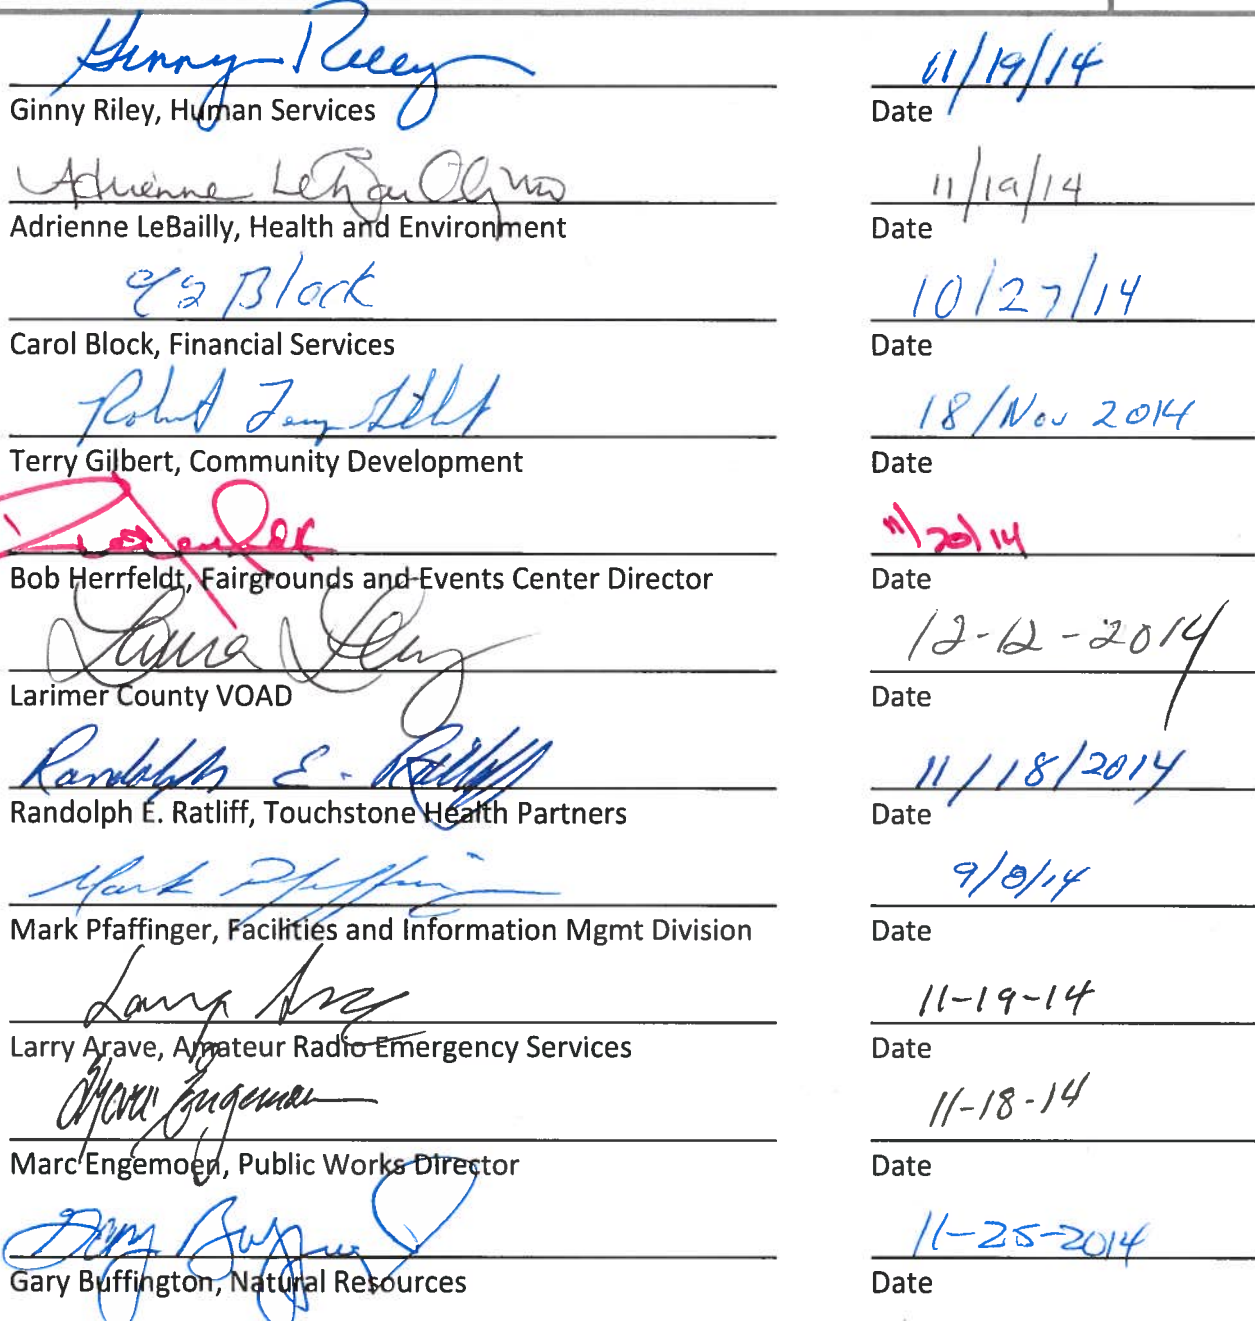 Ginny Riley 11/19/14
Ginny Riley, Human Services Date
Adrienne LeBailly 11/19/14
Adrienne LeBailly, Health and Environment Date
Block 10/27/14
Carol Block, Financial Services Date
Robert Terry Gilbert 18/Nov 2014
Terry Gilbert, Community Development Date
11/20/14
Bob Herrfeldt, Fairgrounds and Events Center Director Date
Laura 12-12-2014
Larimer County VOAD Date
Randolph E. Ratliff 11/18/2014
Randolph E. Ratliff, Touchstone Health Partners Date
Mark Pfaffinger 9/8/14
Mark Pfaffinger, Facilities and Information Mgmt Division Date
Larry Arave 11-19-14
Larry Arave, Amateur Radio Emergency Services Date
Marc Engemoen 11-18-14
Marc Engemoen, Public Works Director Date
Gary Buffington 11-25-2014
Gary Buffington, Natural Resources Date